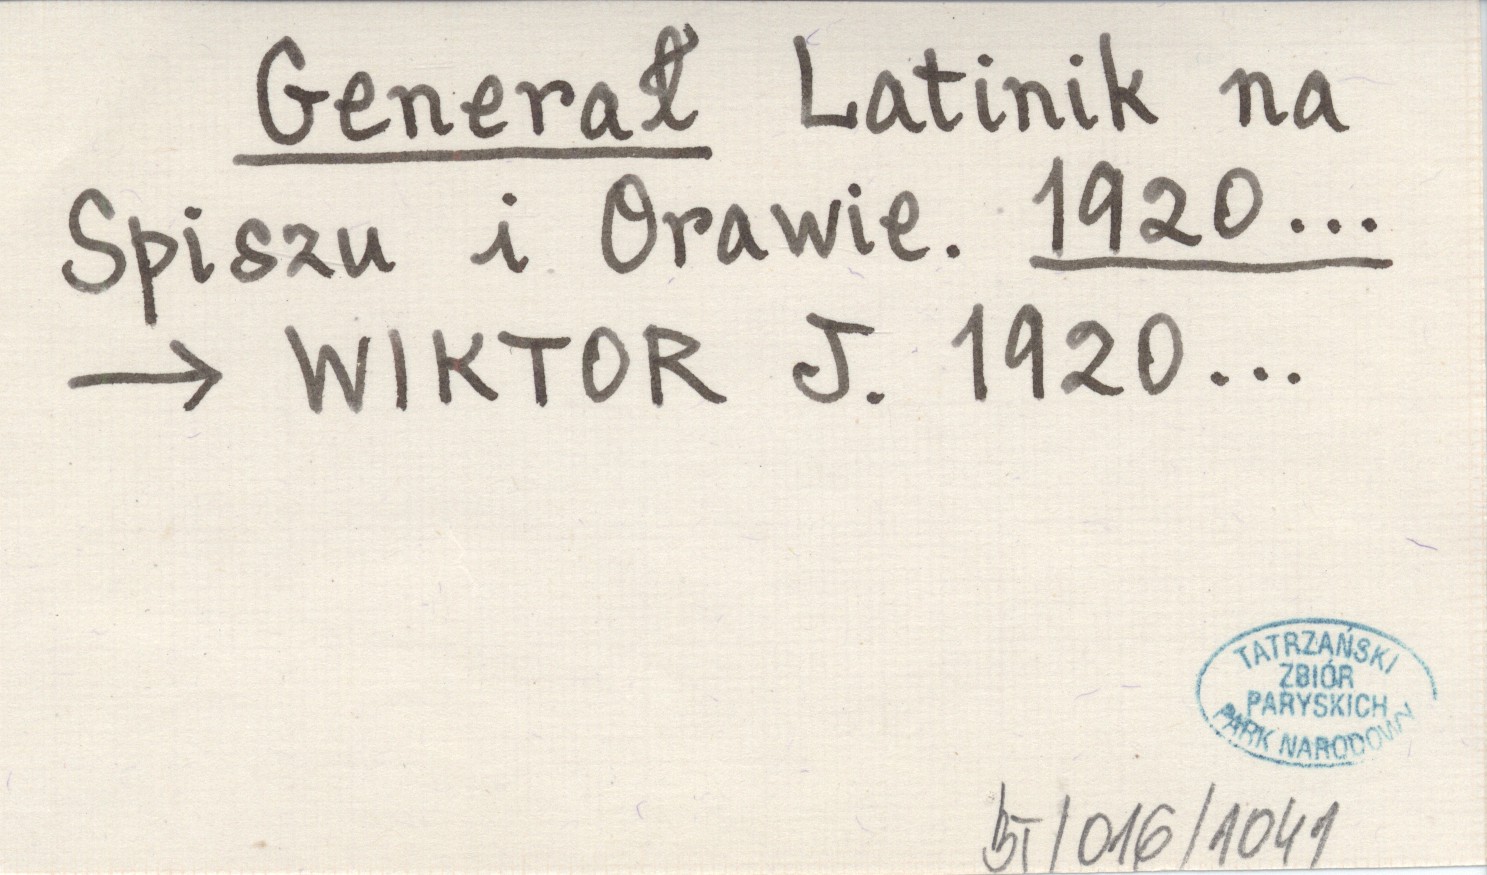 Generał Latinik na
Spiszu i Orawie. 1920...
→ WIKTOR J. 1920...
TATRZAŃSKI
ZBIÓR
PARYSKICH
PARK NARODOWY
/016/1041